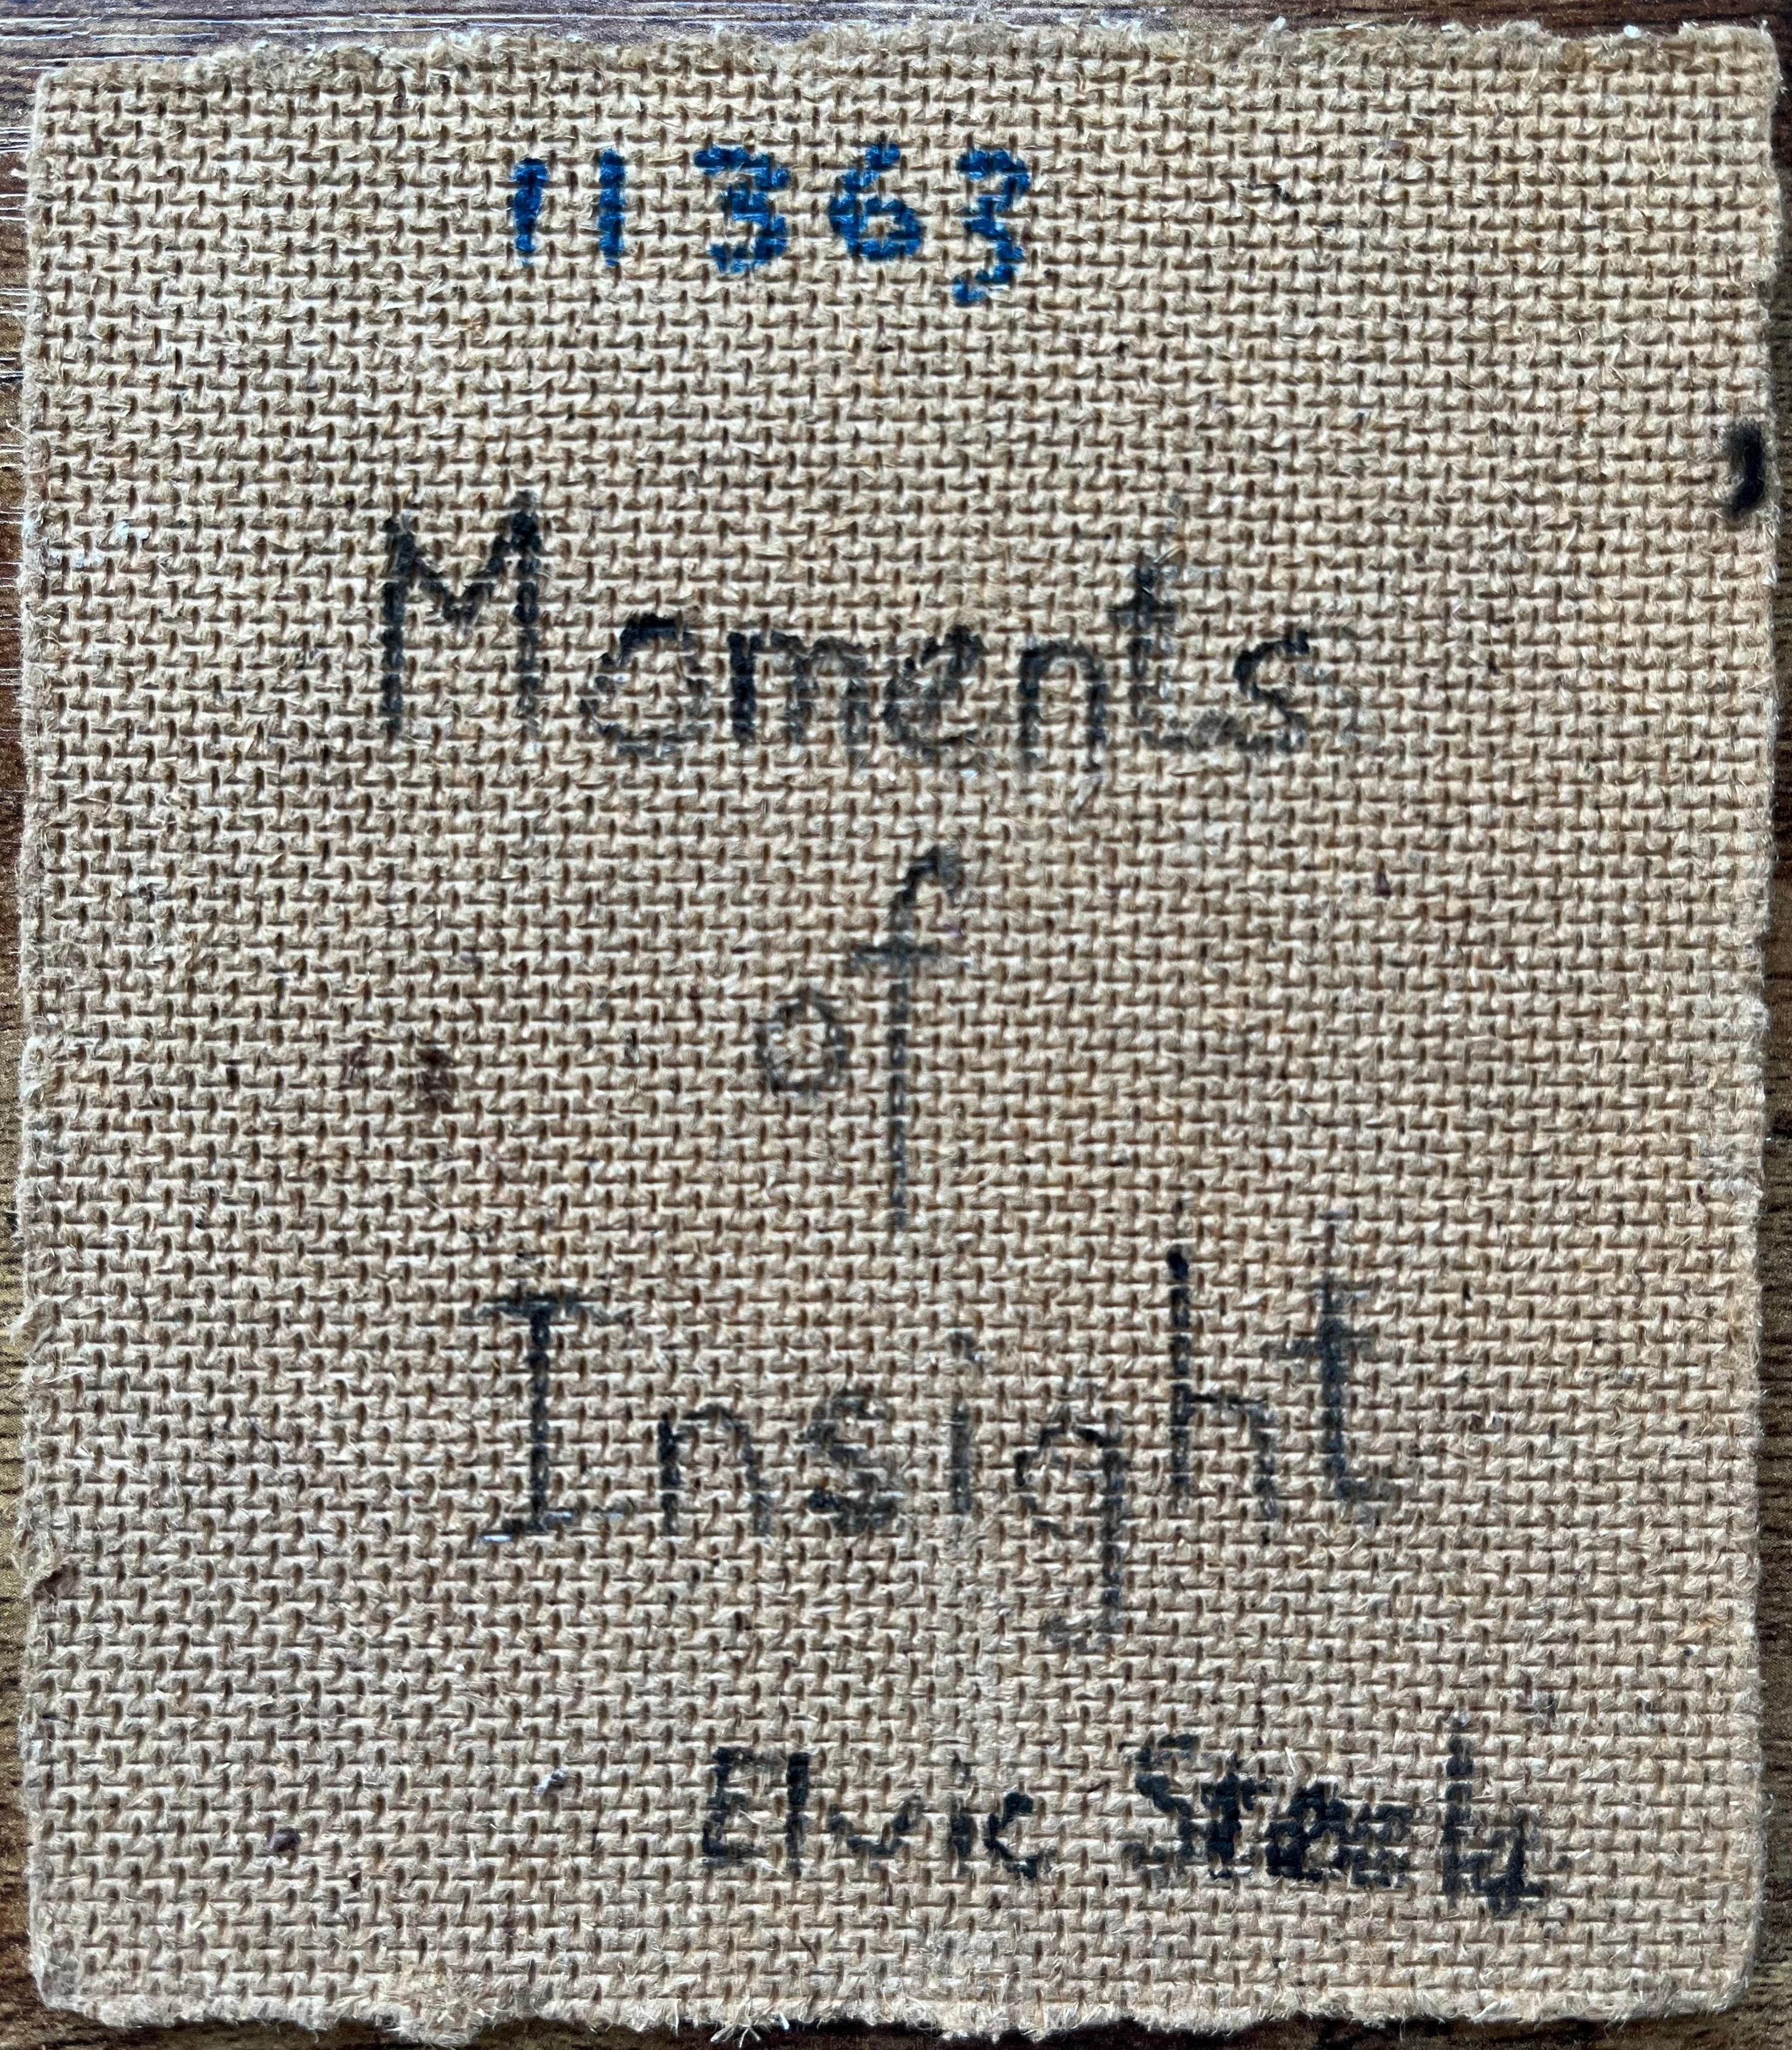 11363
Moments
of
Insight
Elvie